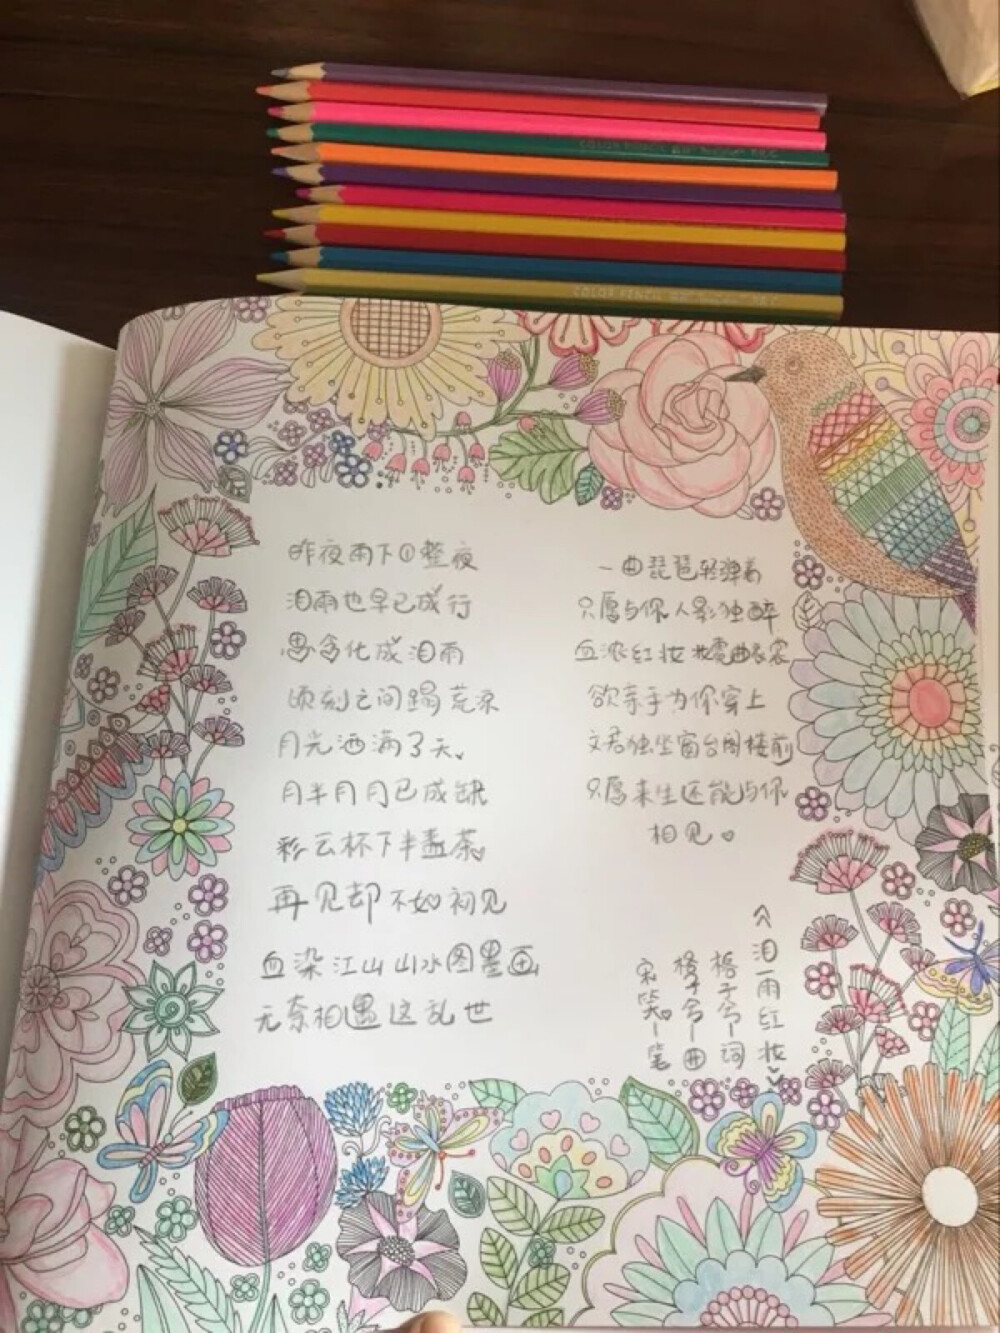 昨夜雨下了整夜
泪雨也早已成行
思念化成泪雨
顷刻之间蹋荒凉
月光洒满了天
月半月月已成缺
彩云杯下半盏茶
再见却不如初见
血染江山山水图墨画
无奈相遇这乱世
一曲琵琶轻弹着
只愿与你人影独醉
血浓红妆
欲亲手为你穿上
文君独坐窗台阁楼前
只愿来生还能与你
相见
《泪雨红妆》
梧子令-词
令-曲
宋笑-笔
COLOR PENCIL
COLOR PENCIL